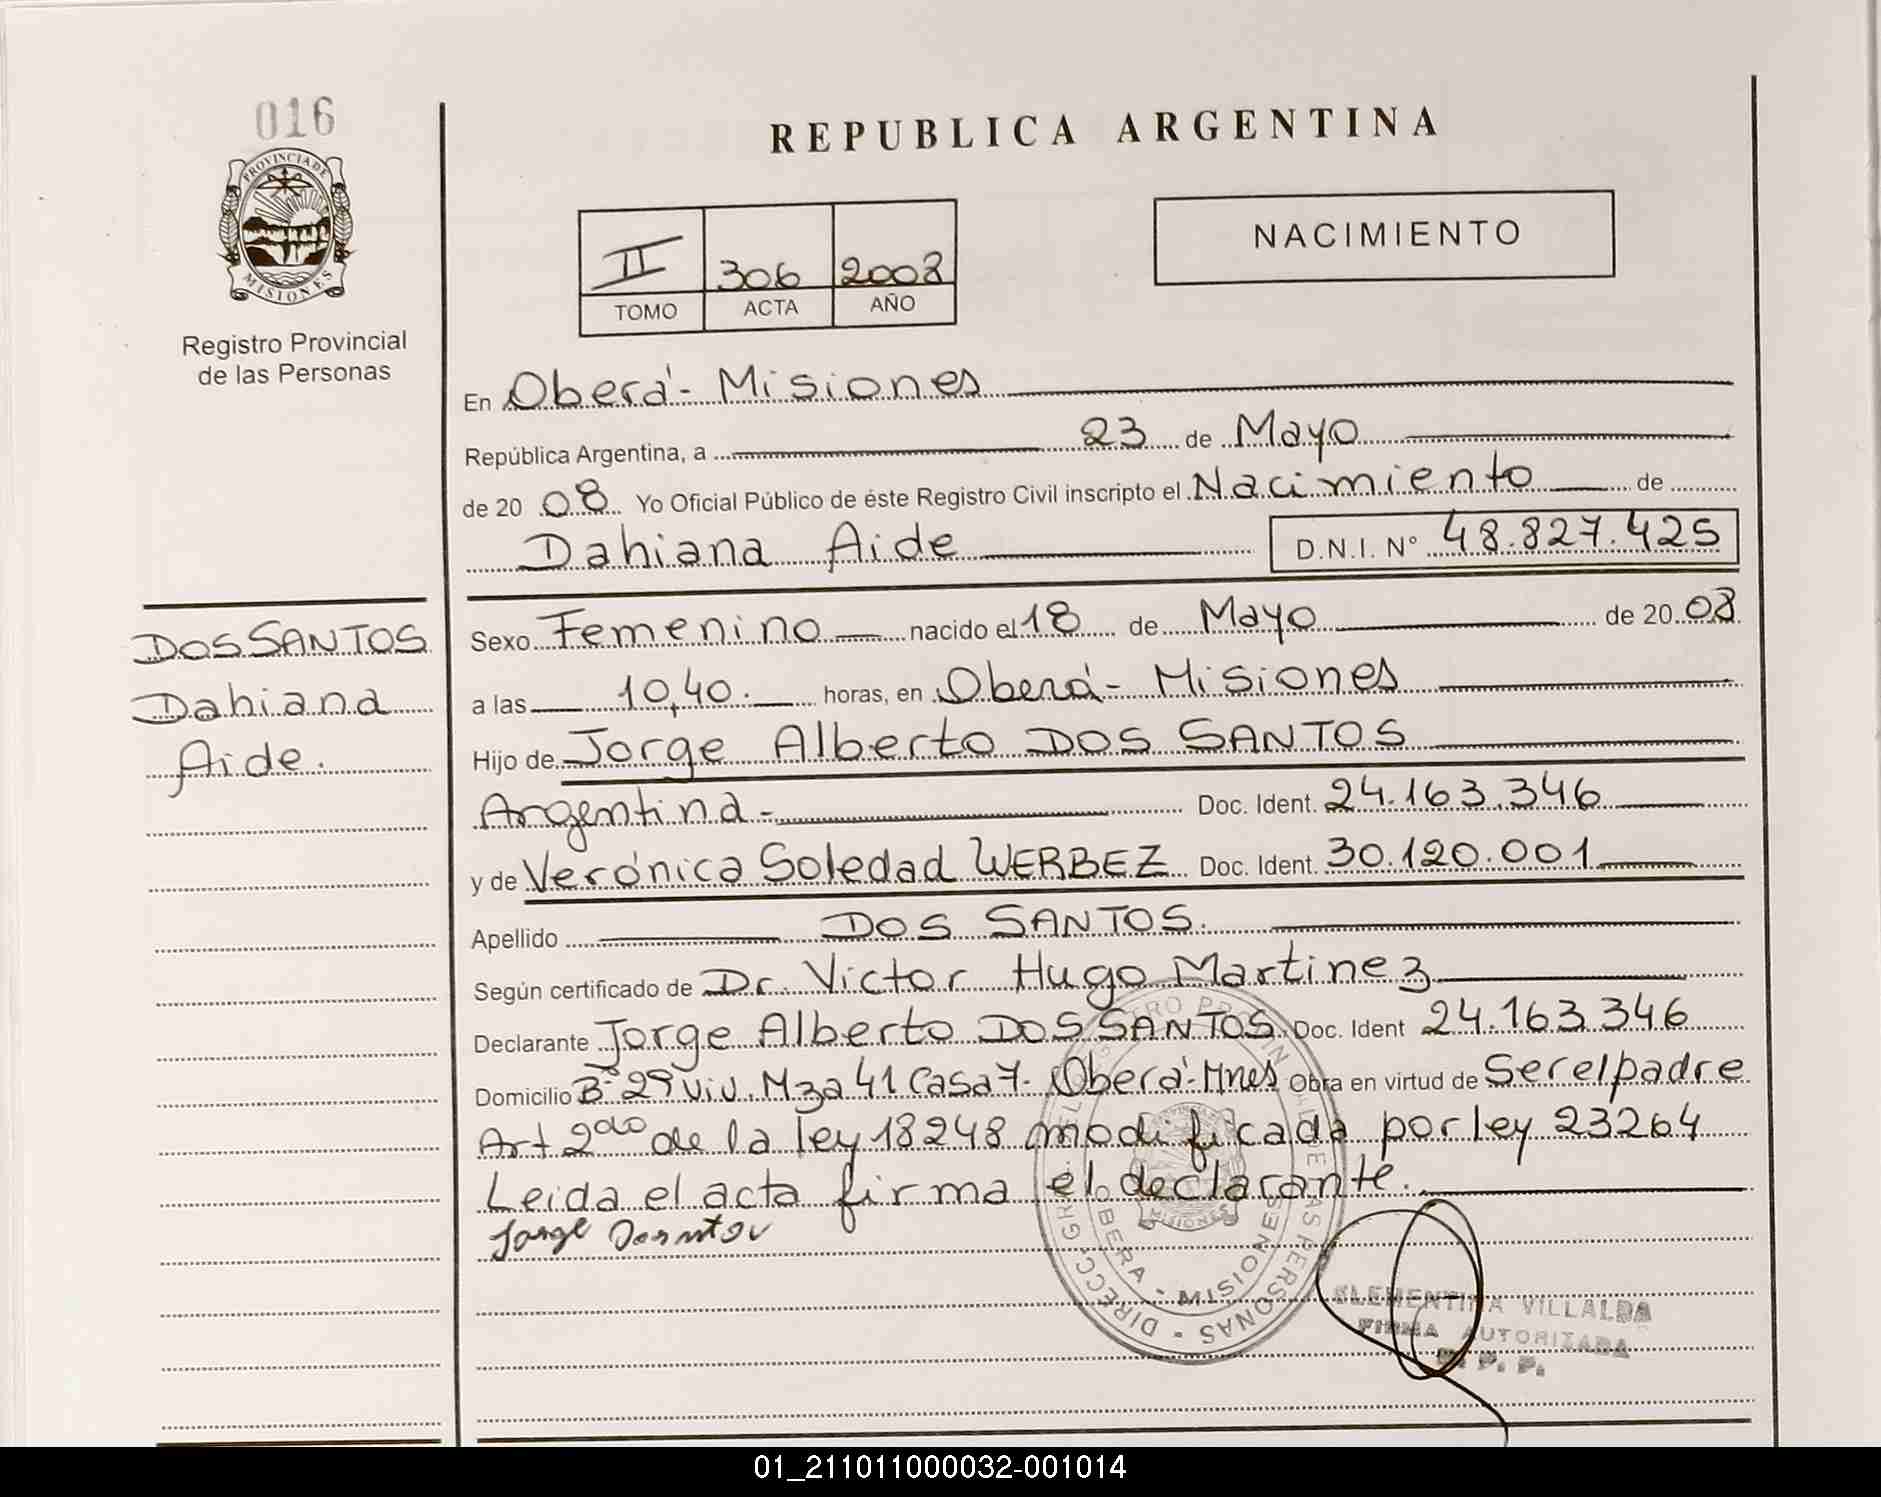 016
REPUBLICA ARGENTINA
PROVINCIA DE MISIONES
Registro Provincial
de las Personas
II 306 2008
TOMO ACTA AÑO
NACIMIENTO
En Oberá - Misiones
República Argentina, a 23 de Mayo
de 20 08 Yo Oficial Público de éste Registro Civil inscripto el Nacimiento de
Dahiana Aide D.N.I. N° 48.827.425
DOS SANTOS
Dahiana
Aide.
Sexo Femenino nacido el 18 de Mayo de 20 08
a las 10,40. horas, en Oberá - Misiones
Hijo de Jorge Alberto DOS SANTOS
Argentina - Doc. Ident. 24.163.346
y de Verónica Soledad WERBEZ Doc. Ident. 30.120.001
Apellido DOS SANTOS.
Según certificado de Dr. Victor Hugo Martinez
Declarante Jorge Alberto DOS SANTOS Doc. Ident 24.163.346
Domicilio B° 29 Viv. Mza 41 Casa 7. Oberá - Mnes Obra en virtud de Ser el padre
Art 2do de la ley 18248 modificada por ley 23264
Leida el acta firma el declarante.
Jorge
DE LAS PERSONAS - DIRECC. GRAL.
OBERA - MISIONES
MISIONES
CLEMENTINA VILLALBA
FIRMA AUTORIZADA
R. P. P.
01_211011000032-001014